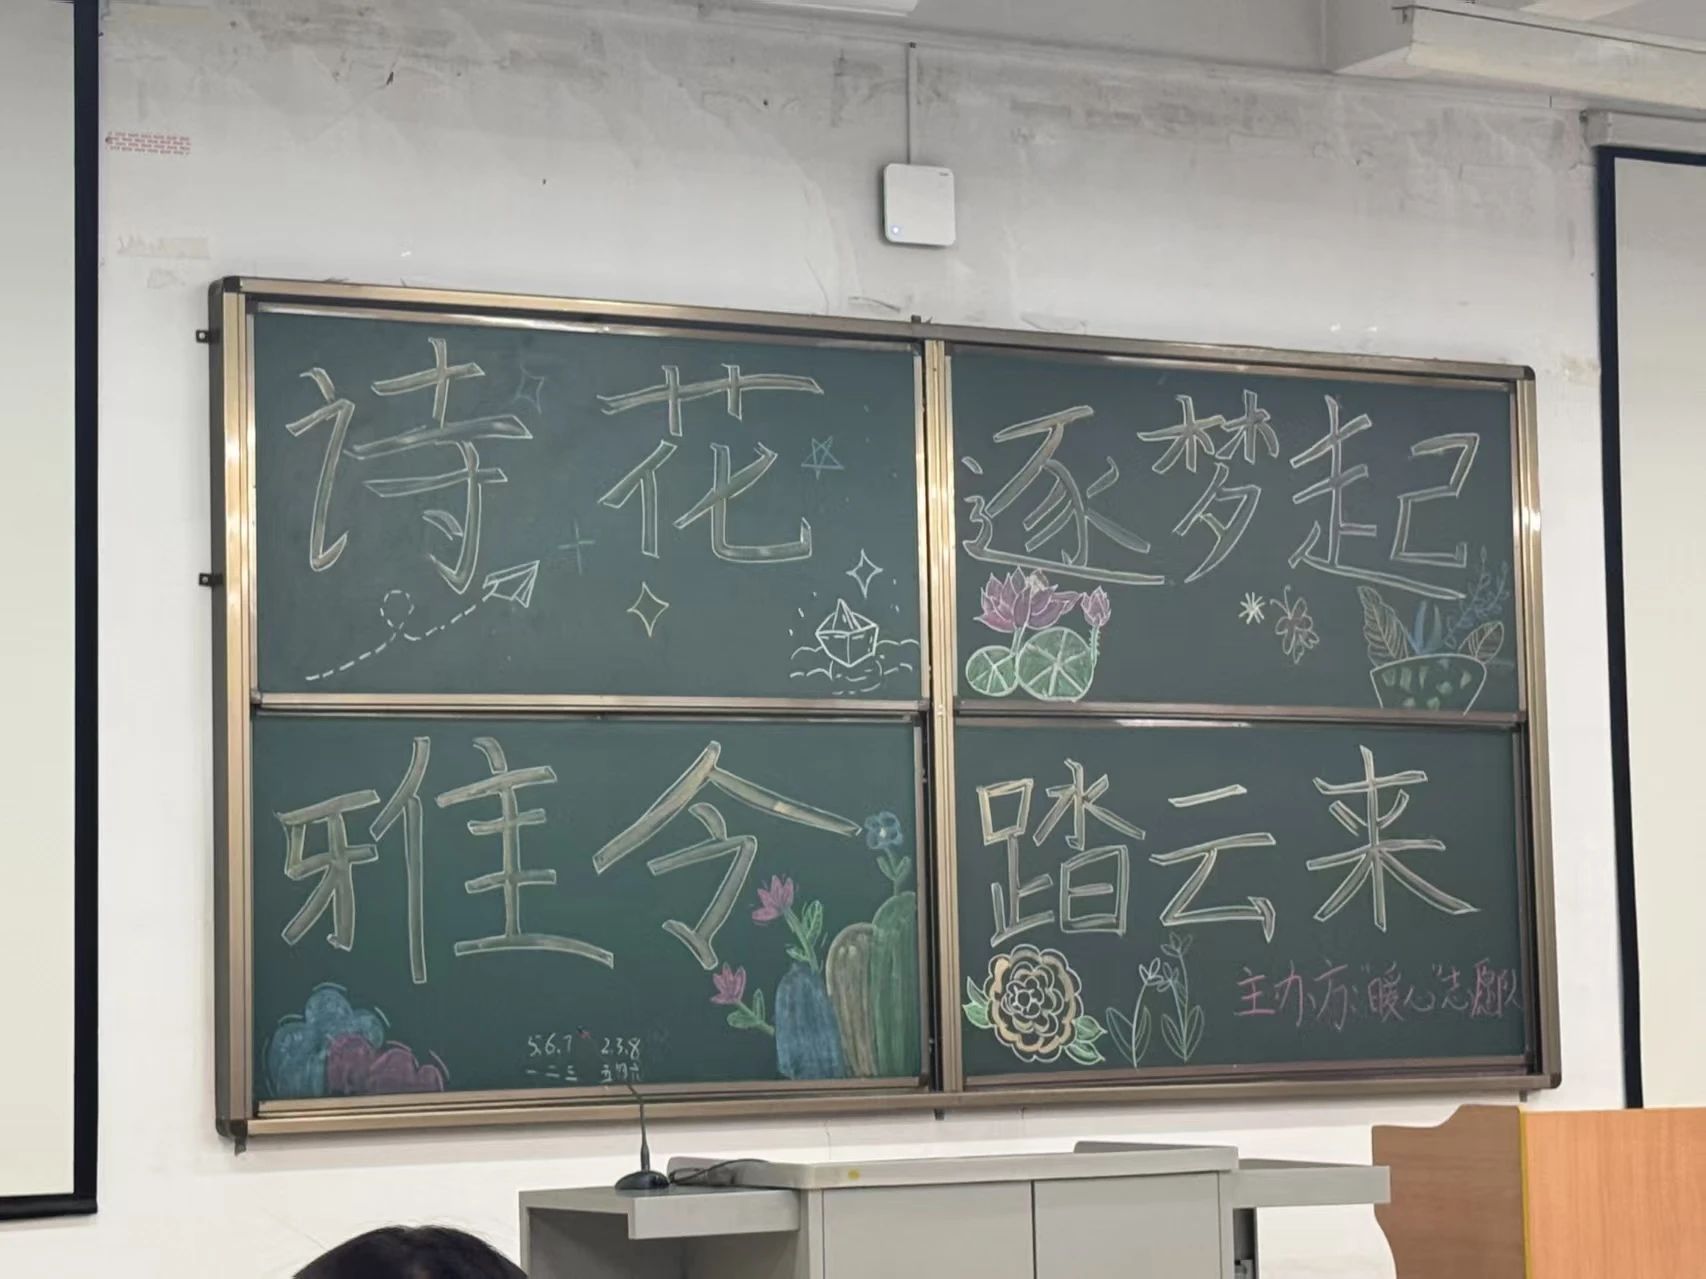 诗花
雅令
逐梦起
踏云来
主办方:“暖心”志愿队
5.6.7 2.3.8
一二三 五四六